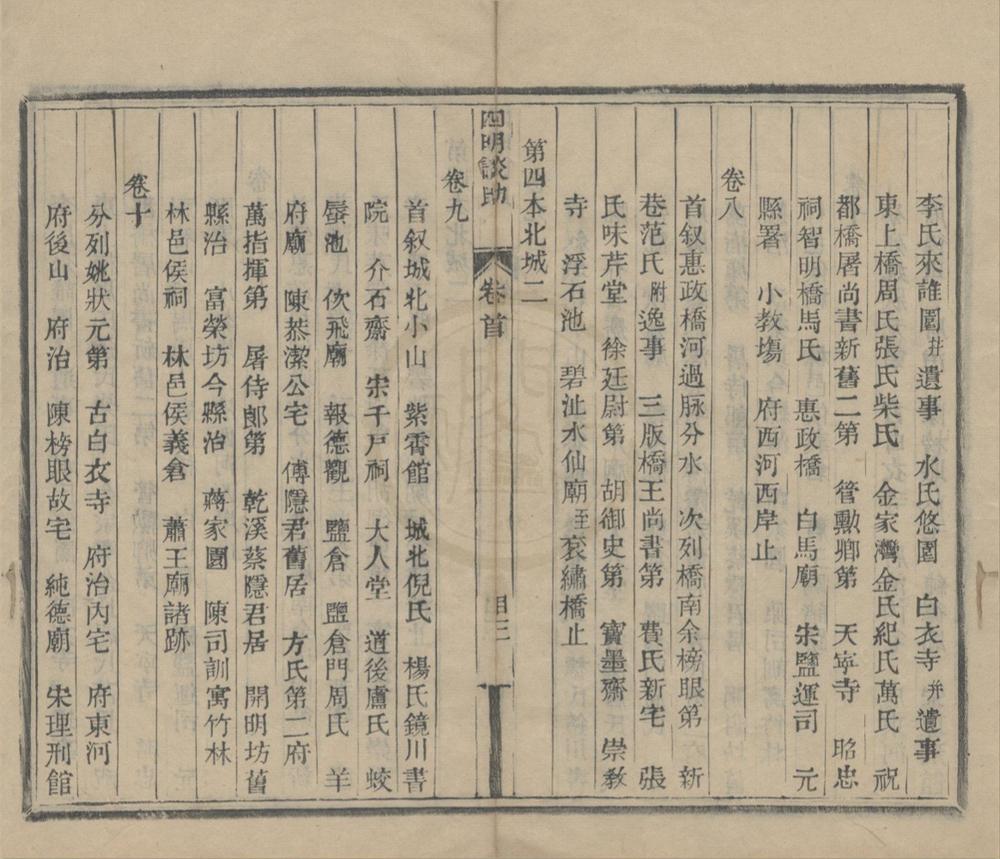 李氏來誰園并遺事　水氏悠園　白衣寺并遺事
東上橋周氏張氏柴氏　金家灣金氏紀氏萬氏　祝
都橋屠尚書新舊二第　管勳鄉第　天寧寺　昭忠
祠智明橋馬氏　惠政橋　白馬廟　宋鹽運司　元
縣署　小教塲　府西河西岸止
卷八
首叙惠政橋河過脉分水　次列橋南余榜眼第　新
巷范氏附逸事　三版橋王尚書第　費氏新宅　張
氏味芹堂　徐廷尉第　胡御史第　寶墨齋　崇教
寺　浮石池　碧沚水仙廟至袞繡橋止
第四本北城二
四明談助　卷首　目三
卷九
首叙城北小山　紫霄館　城北倪氏　楊氏鏡川書
院　介石齋　宋千戶祠　大人堂　道後盧氏　蛟
蜃池　佽飛廟　報德觀　鹽倉　鹽倉門周氏　羊
府廟　陳恭潔公宅　傅隱君舊居　方氏第二府
萬指揮第　屠侍郎第　乾溪蔡隱君居　開明坊舊
縣治　富榮坊今縣治　蔣家園　陳司訓寓竹林
林邑侯祠　林邑侯義倉　蕭王廟諸跡
卷十
分列姚狀元第　古白衣寺　府治內宅　府東河
府後山　府治　陳榜眼故宅　純德廟　宋理刑館